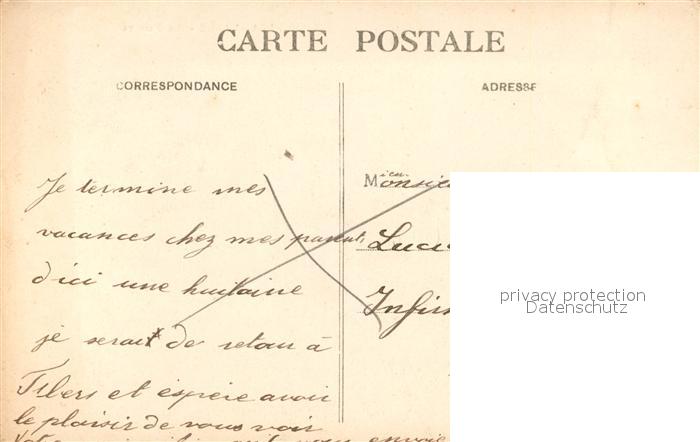 CARTE POSTALE
CORRESPONDANCE
ADRESSE
Je termine mes
vacances chez mes parents
d'ici une huitaine
je serait de retour à
et espère avoir
le plaisir de vous voir
envoie
Monsieu
Luci
Infir
privacy protection
Datenschutz